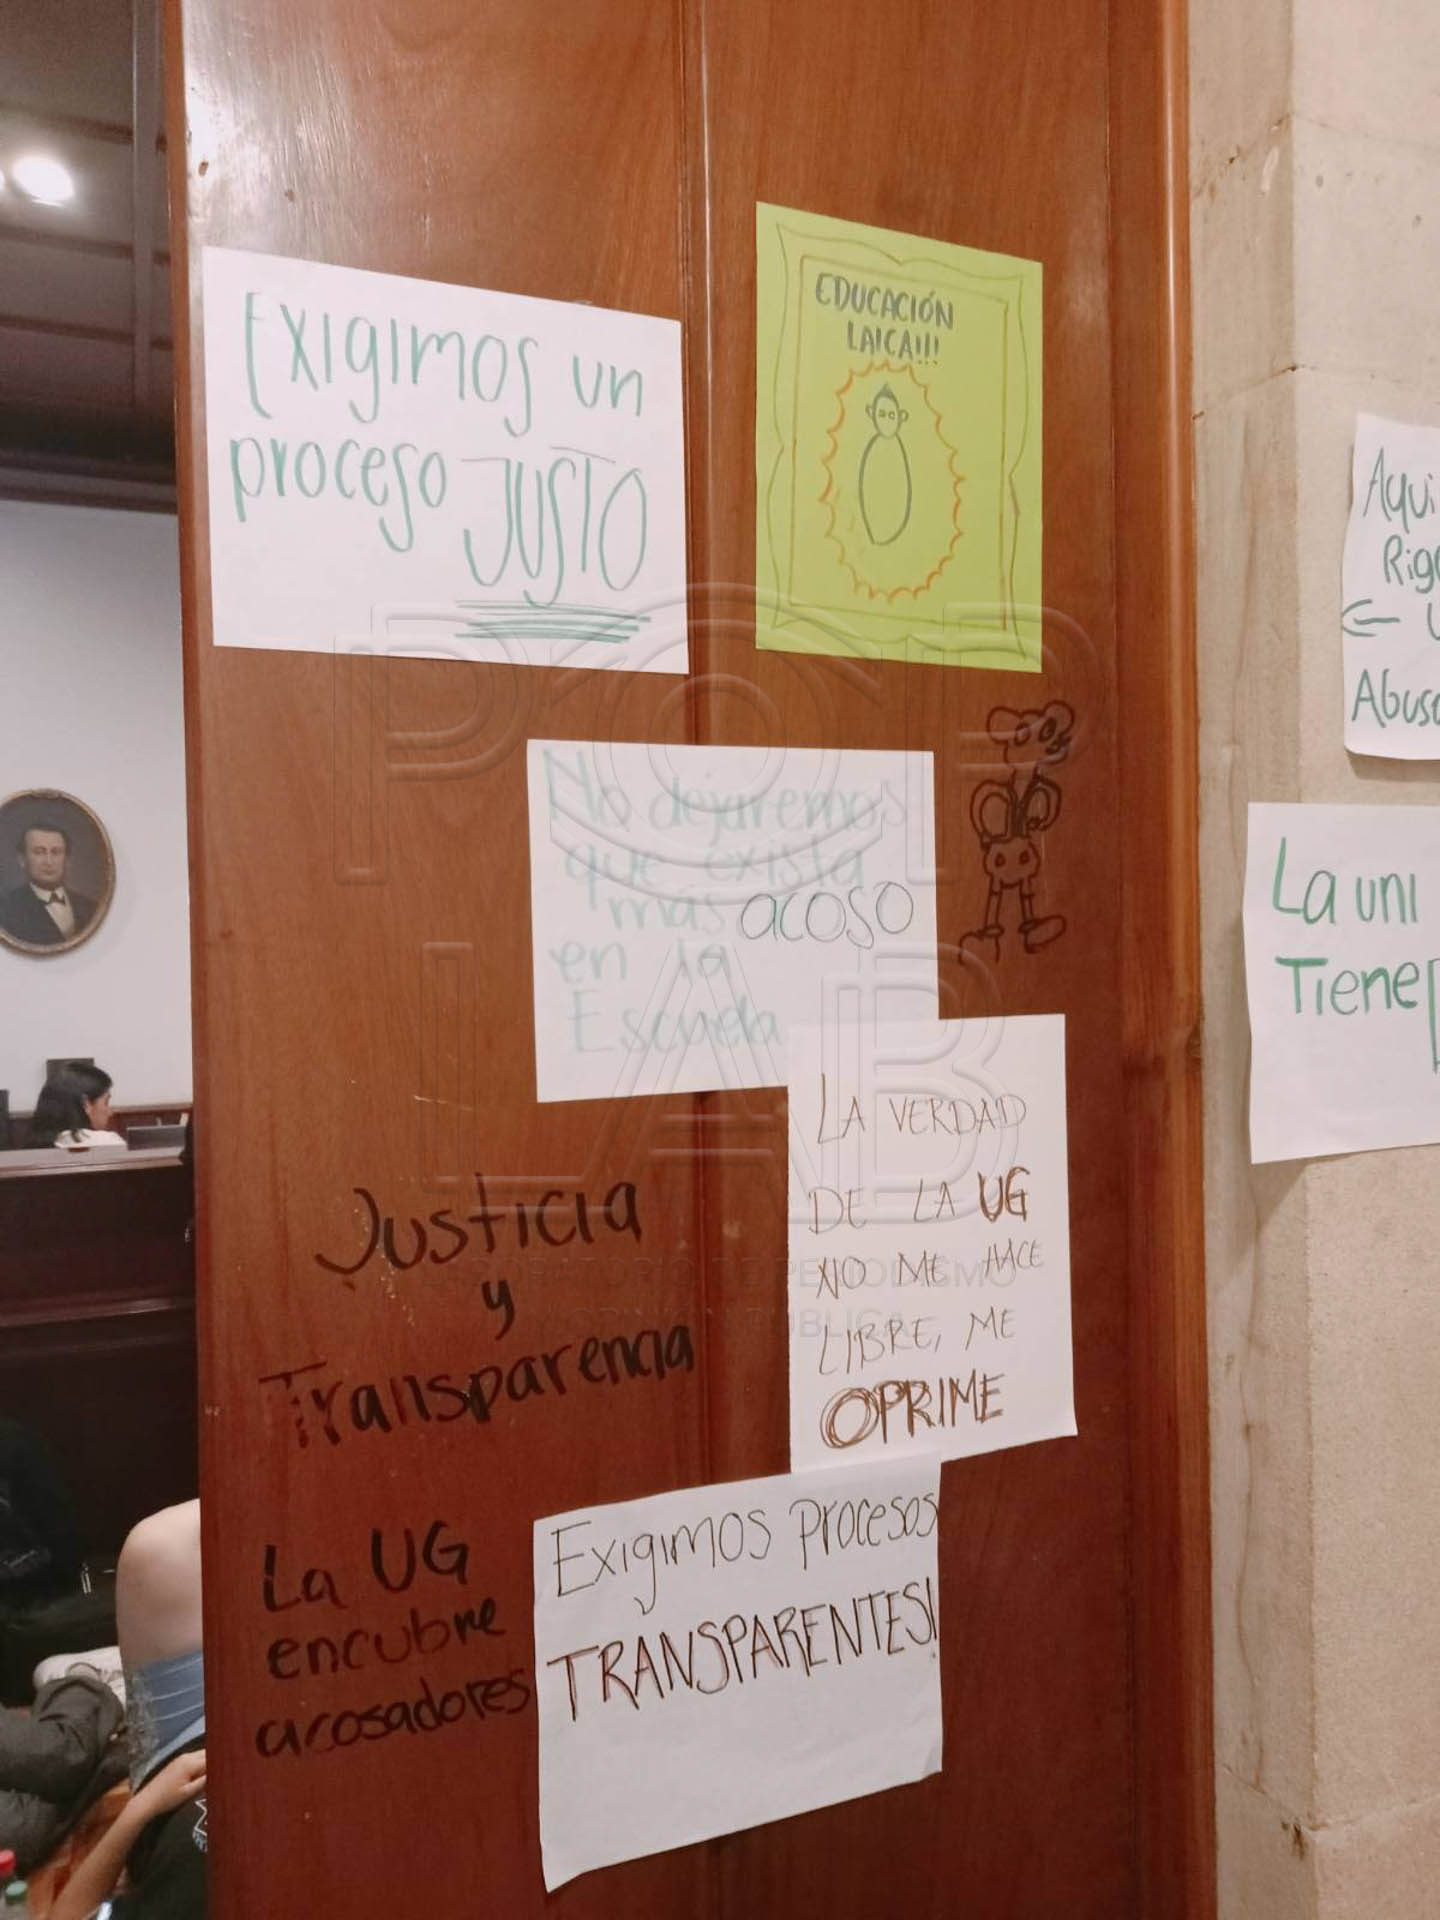 Exigimos un
proceso JUSTO
EDUCACIÓN
LAICA!!!
No dejaremos
que exista
más acoso
en la
Escuela
LA VERDAD
DE LA UG
NO ME HACE
LIBRE, ME
OPRIME
Justicia
y
Transparencia
La UG
encubre
acosadores
Exigimos procesos
TRANSPARENTES!
Aqui
La uni
Tiene
POP
LAB
LABORATORIO DE PERIODISMO
Y OPINIÓN PÚBLICA